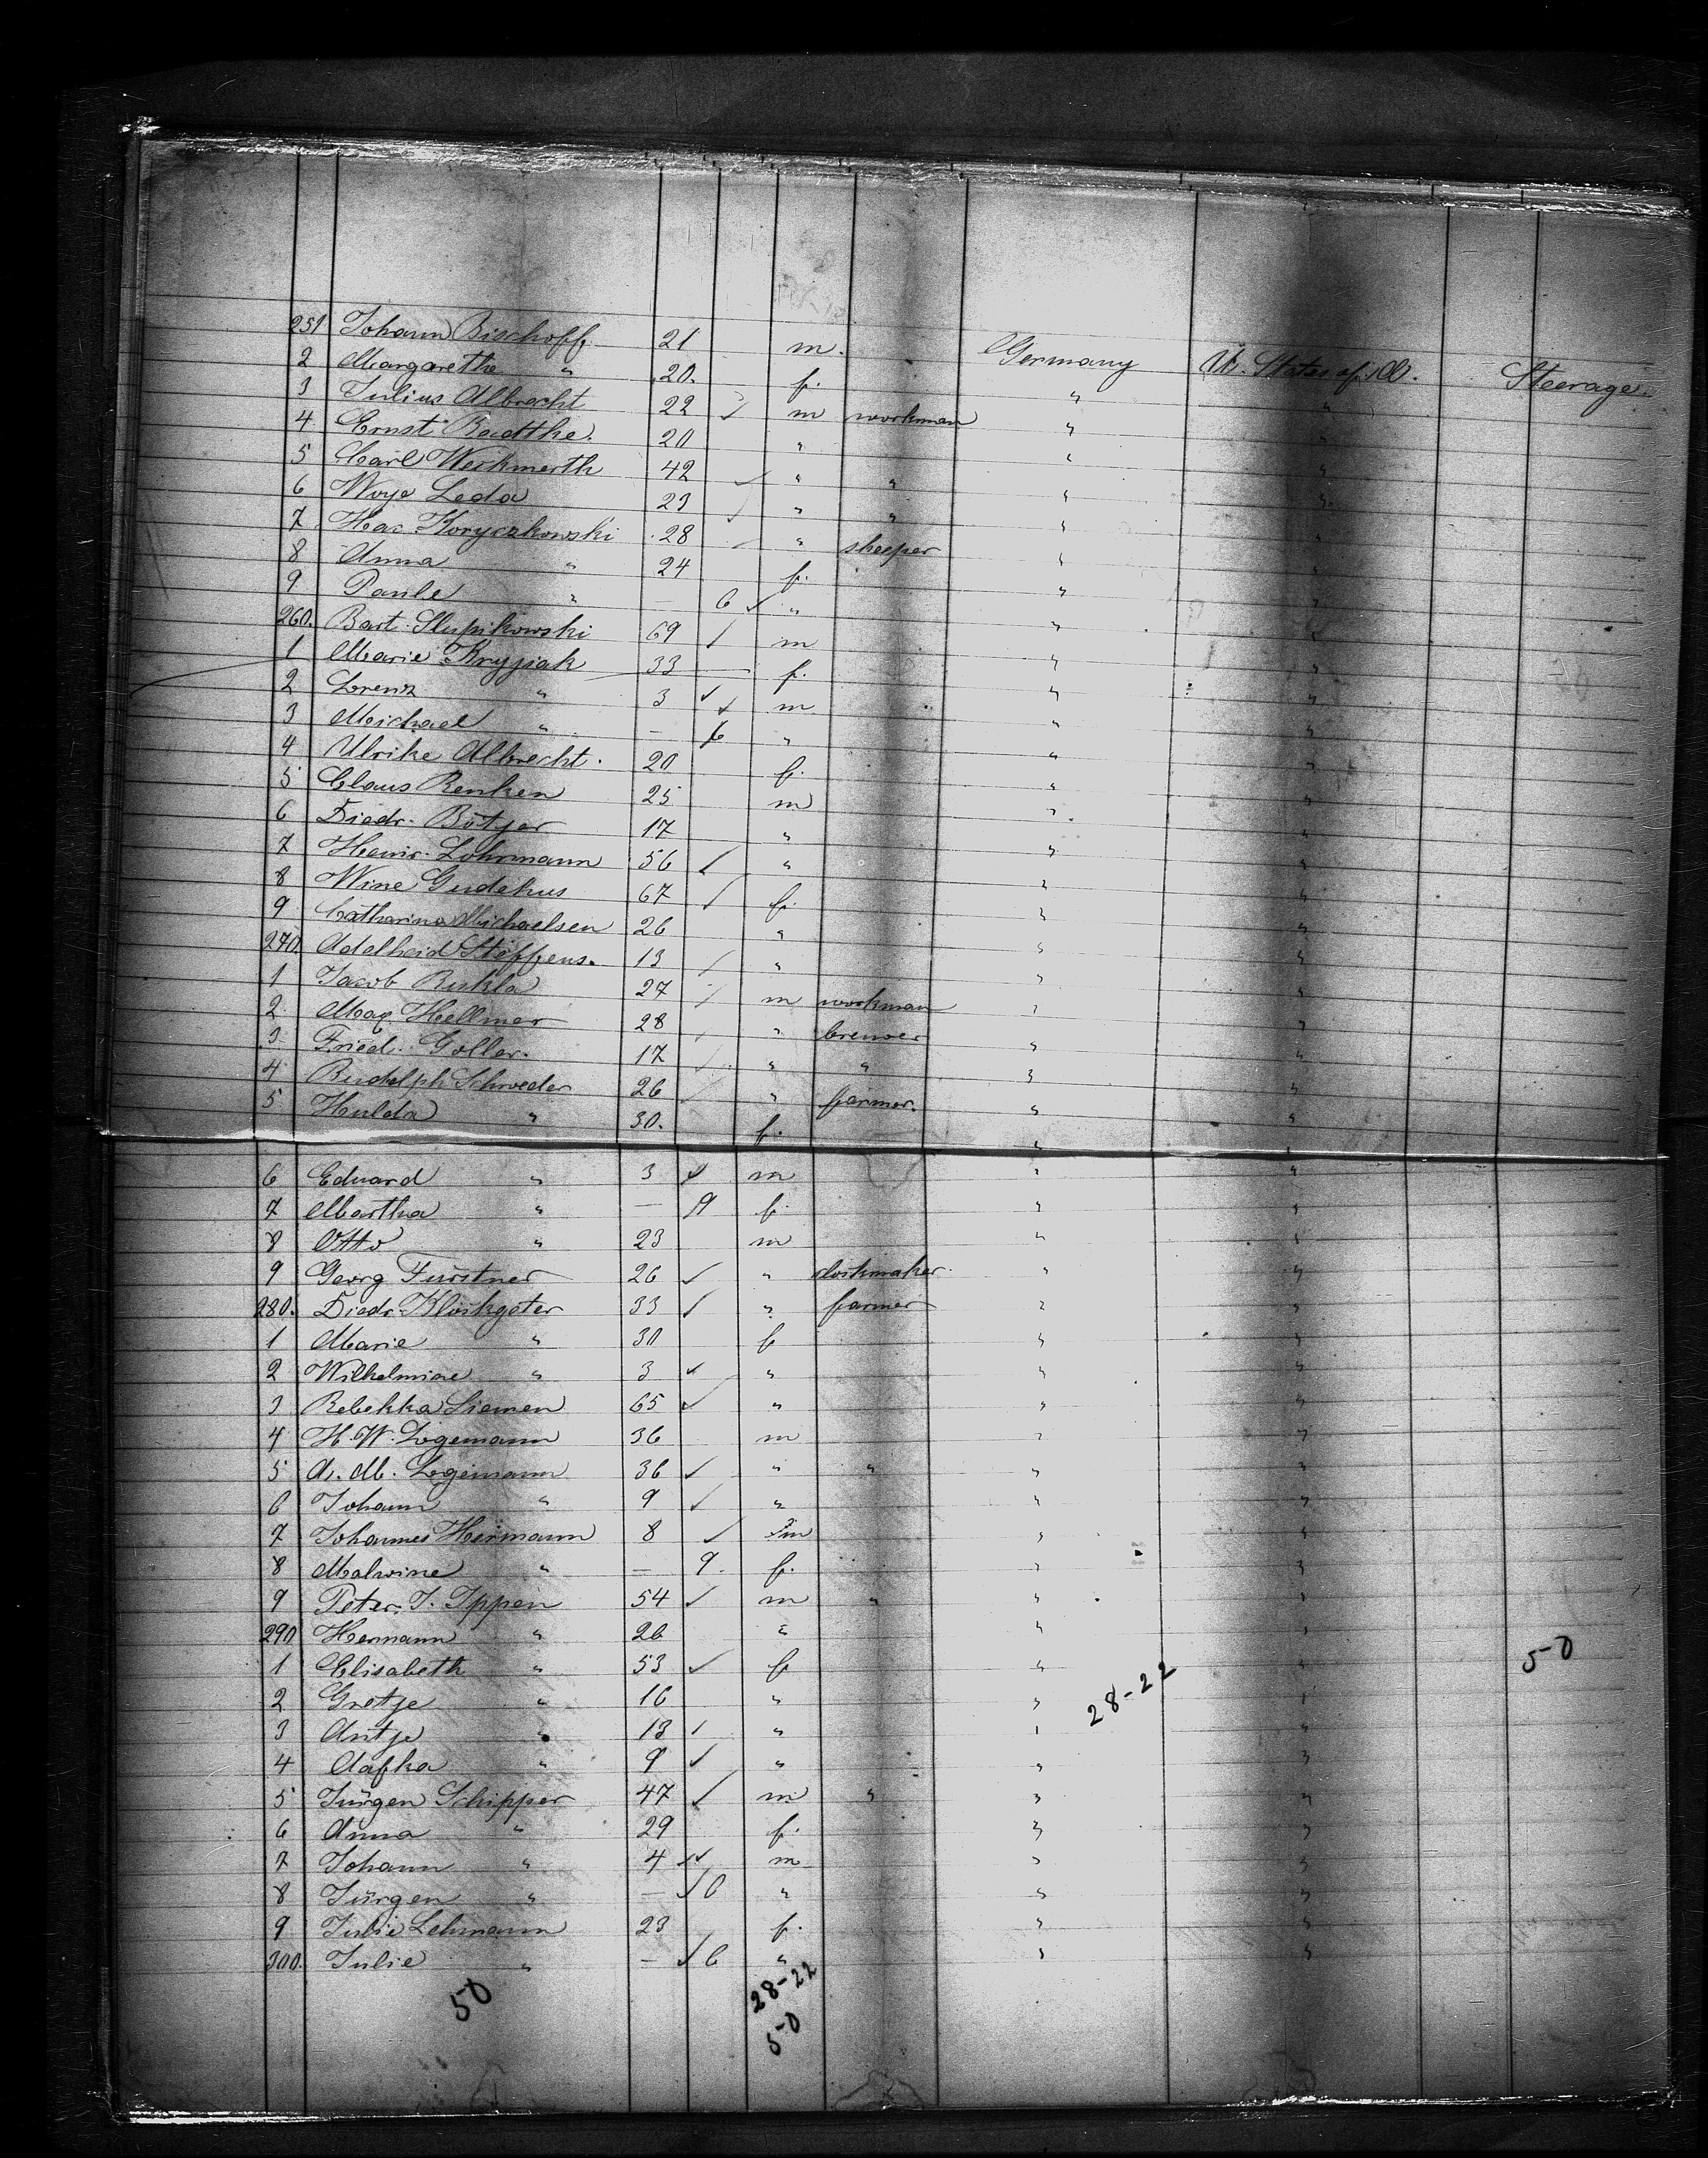 251 Johann Bischoff 21 m. Germany U. States of A. Steerage.
2 Margarethe " 20. f. " "
3 Julius Albrecht 22 m workman " "
4 Ernst Radtke. 20 " " "
5 Carl Weckwerth 42 " " " "
6 Woye Leda 23 " " " "
7 Koryczkowski 28 " sheeper " "
8 Anna " 24 f. " "
9 Paule " — 6 " " "
260. Bart. Slupikowski 69 m " "
1 Marie Kryjiak 33 f. " "
2 Lorenz " 3 m " "
3 Michael " — 6 " " "
4 Ulrike Albrecht. 20 f. " "
5 Claus Renken 25 m " "
6 Diedr. Bötjer 17 " " "
7 Heinr. Lohrmann 56 " " "
8 Wine Gudehus 67 f. " "
9 Catharina Michaelsen 26 " " "
270. Adelheid Steffens. 13 " " "
1 Jacob 27 m workman " "
2 Max Hellmer 28 " brewer " "
3 Fried. Goller. 17 " " " "
4 Rudolph Schroeder 26 " farmer. " "
5 Hulda " 30. f. " "
6 Eduard " 3 m " "
7 Martha " — 9 f. " "
8 Otto " 23 m " "
9 Georg Fürstner 26 " clockmaker " "
280. Diedr. Klöckgeter 33 " farmer " "
1 Marie " 30 f " "
2 Wilhelmine " 3 " " "
3 Rebekka Siemen 65 " " "
4 H. W. Logemann 36 m " "
5 A. M. Logemann 36 " " " "
6 Johann " 9 " " "
7 Johannes Hermann 8 m " "
8 Malwine " — 9. f. " "
9 Peter J. Ippen 54 m " " "
290 Hermann " 26 " " "
1 Elisabeth " 53 f " " 50
2 Gretje " 16 " " 28-22 "
3 Antje " 13 " " "
4 Aafka " 9 " " "
5 Jürgen Schipper 47 m " " "
6 Anna " 29 f. " "
7 Johann " 4 m " "
8 Jürgen " — 6 " " "
9 Julie Lehmann 23 f. " "
300. Julie " — 6 " " "
50 28-22
50